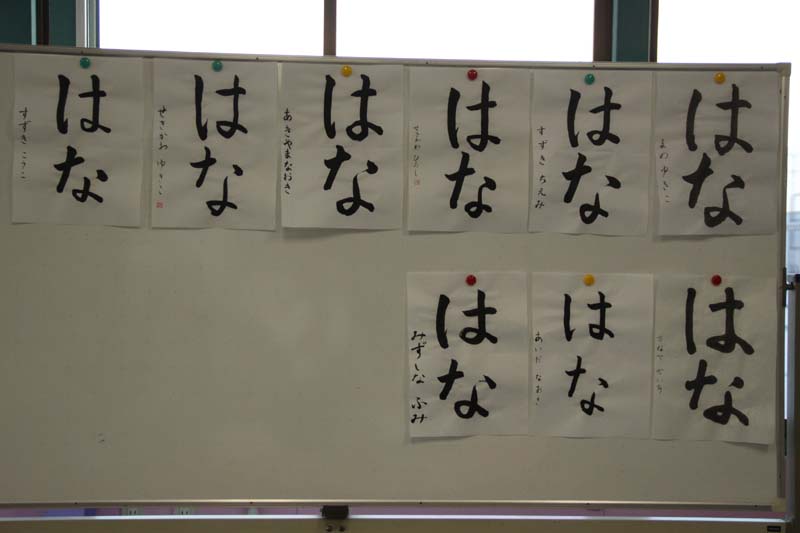 はな
まつ ゆきこ
はな
すずき ちえみ
はな
はな
あきやまなおき
はな
せきかわ ゆきこ
はな
すずき こうこ
はな
はな
あいだ なおき
はな
みずしな ふみ